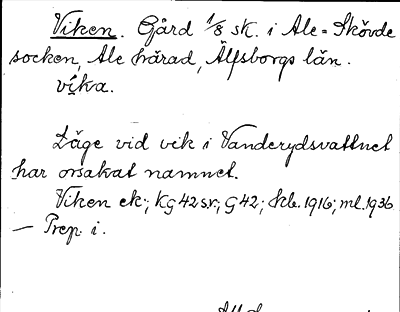 Viken. Gård 1/8 sk. i Ale-Skövde
socken, Ale härad, Älfsborgs län.
víka.
Läge vid vik i Vanderydsvattnet
har orsakat namnet.
Viken ek.; Kg 42 sv.; G 42; kb. 1916; ml. 1936
— Prep. i.